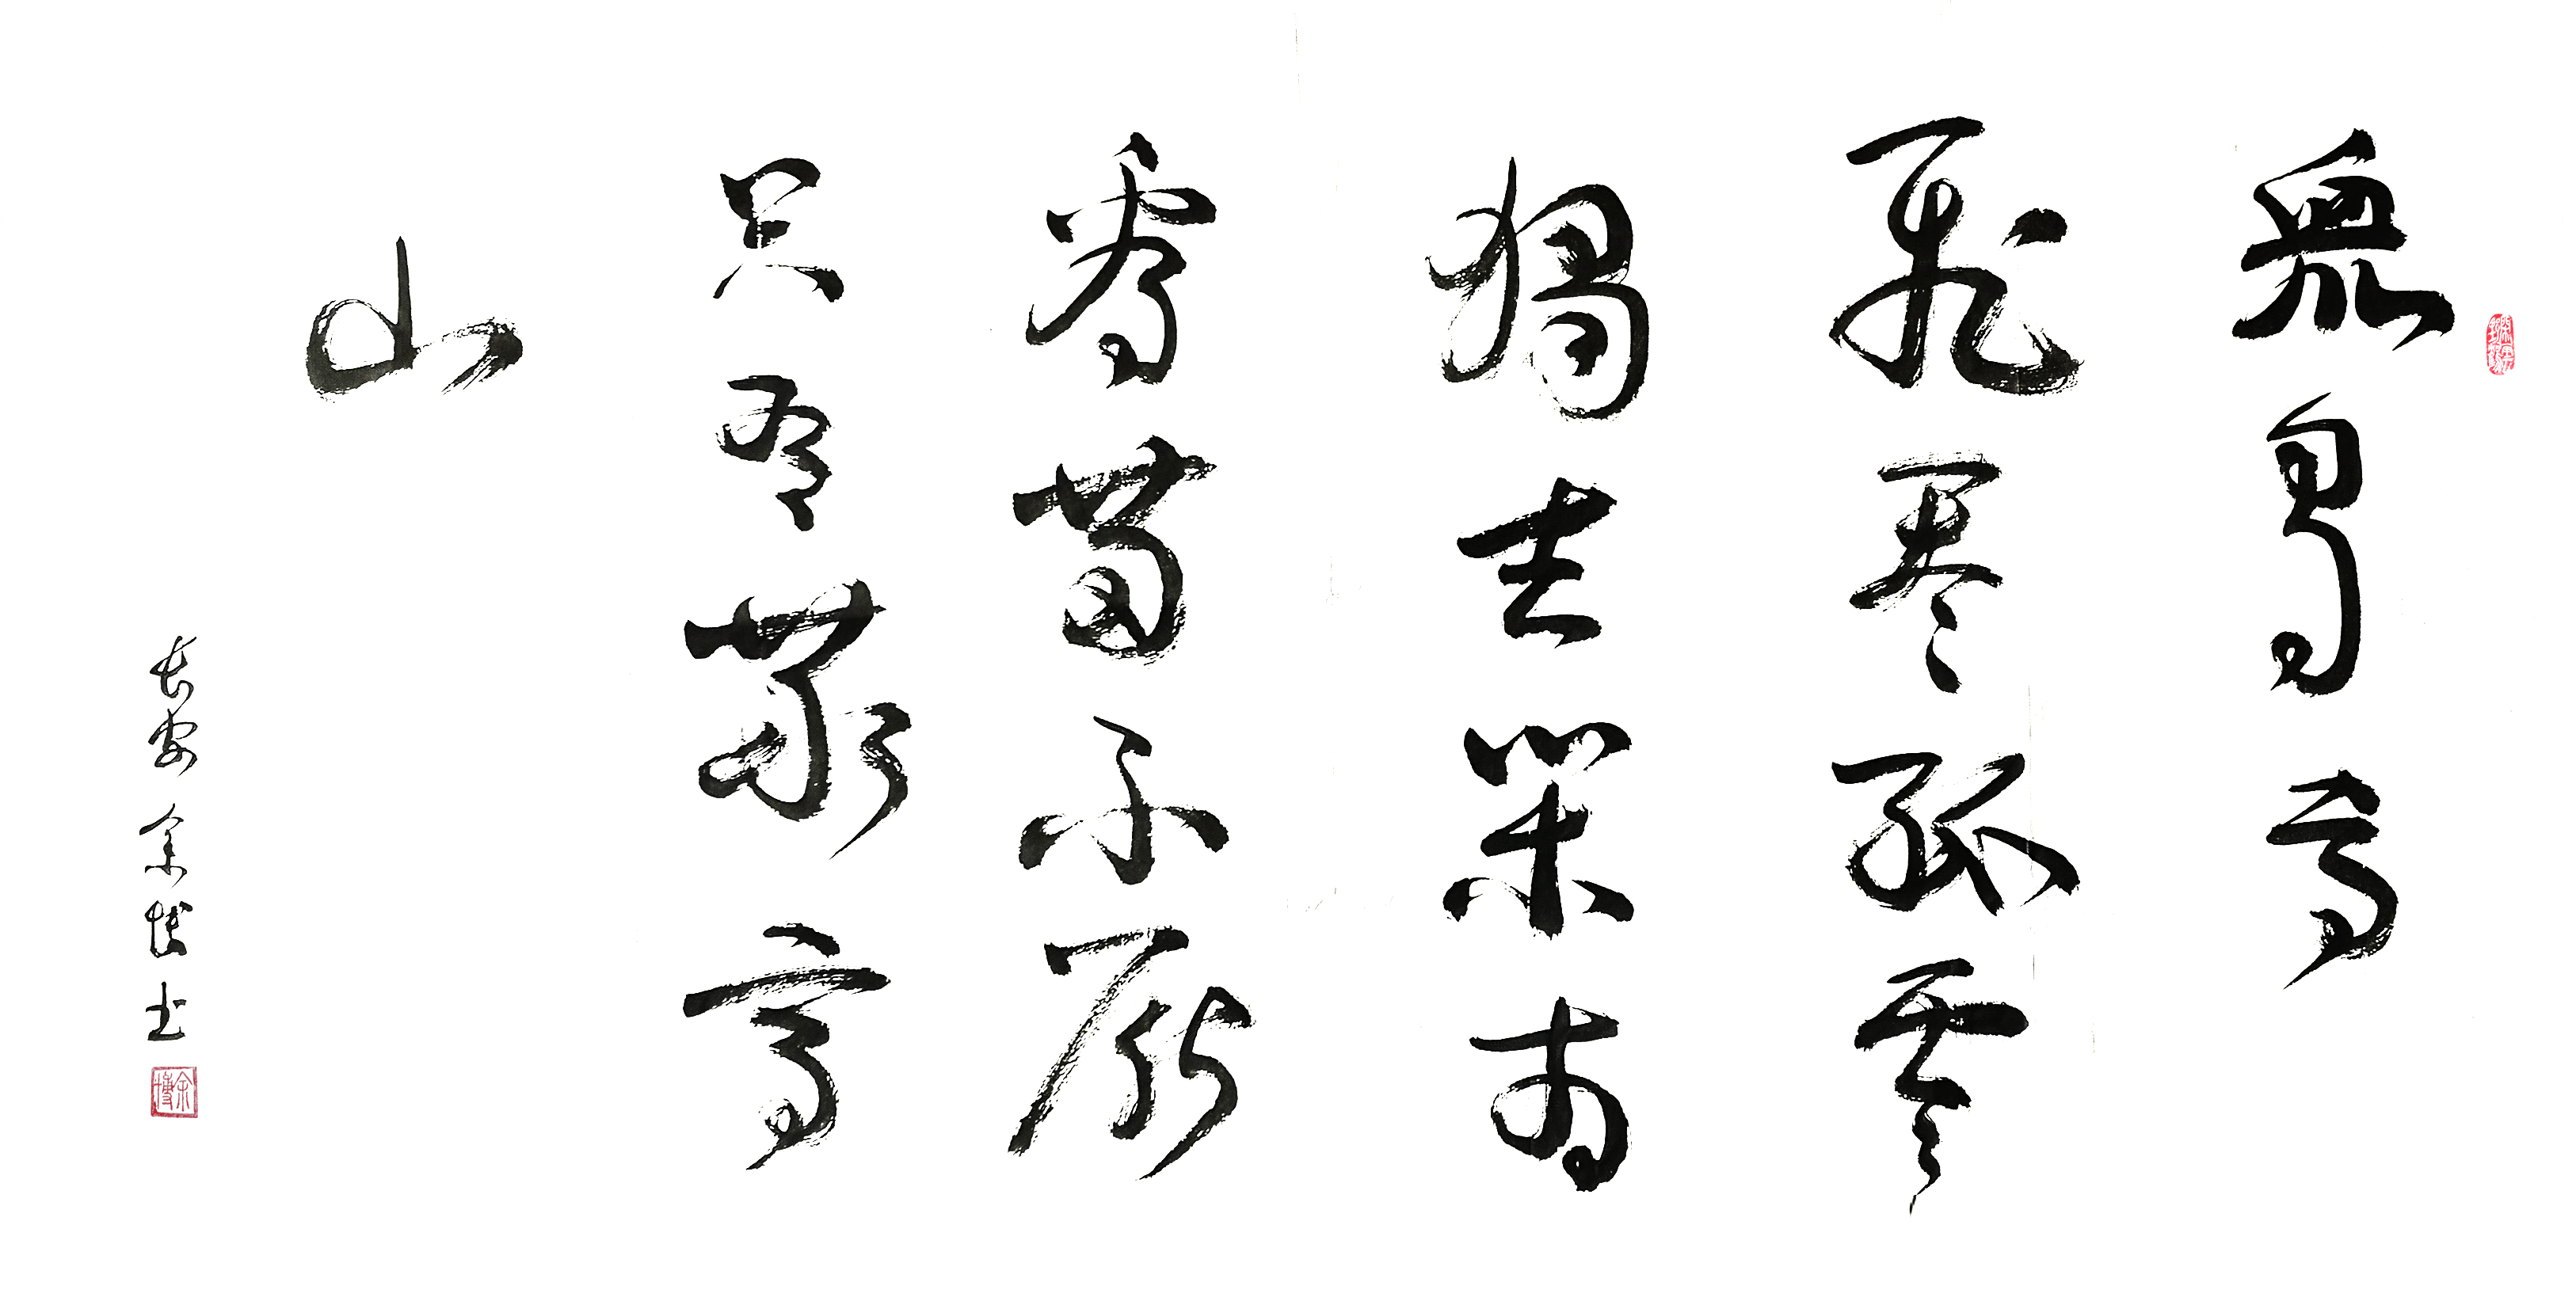 眾鳥高
飛盡孤雲
獨去閑相
看兩不厭
只有敬亭
山
長安余博书
余博